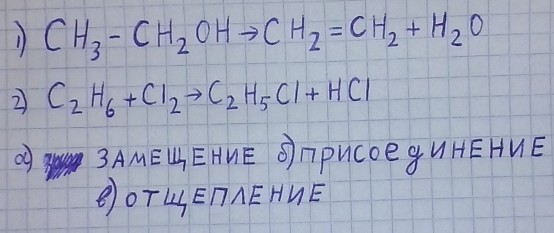 1) CH₃-CH₂OH→CH₂=CH₂+H₂O
2) C₂H₆+Cl₂→C₂H₅Cl+HCl
а) ЗАМЕЩЕНИЕ б) ПРИСОЕДИНЕНИЕ
в) ОТЩЕПЛЕНИЕ